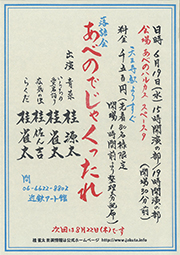 日時 6月19日(水) 15時開演の部/19時開演の部
(開場30分前)
会場 あべのハルカス スペース9
天王寺駅よりすぐ
料金 千五百円 先着80名様限定
落語会
あべのでじゃくったれ
出演
青菜 桂源太
桂雀太
桂佐ん吉
らくだ 桂雀太
問
06-6622-8802
近鉄アート館
次回は8月22日(木)です